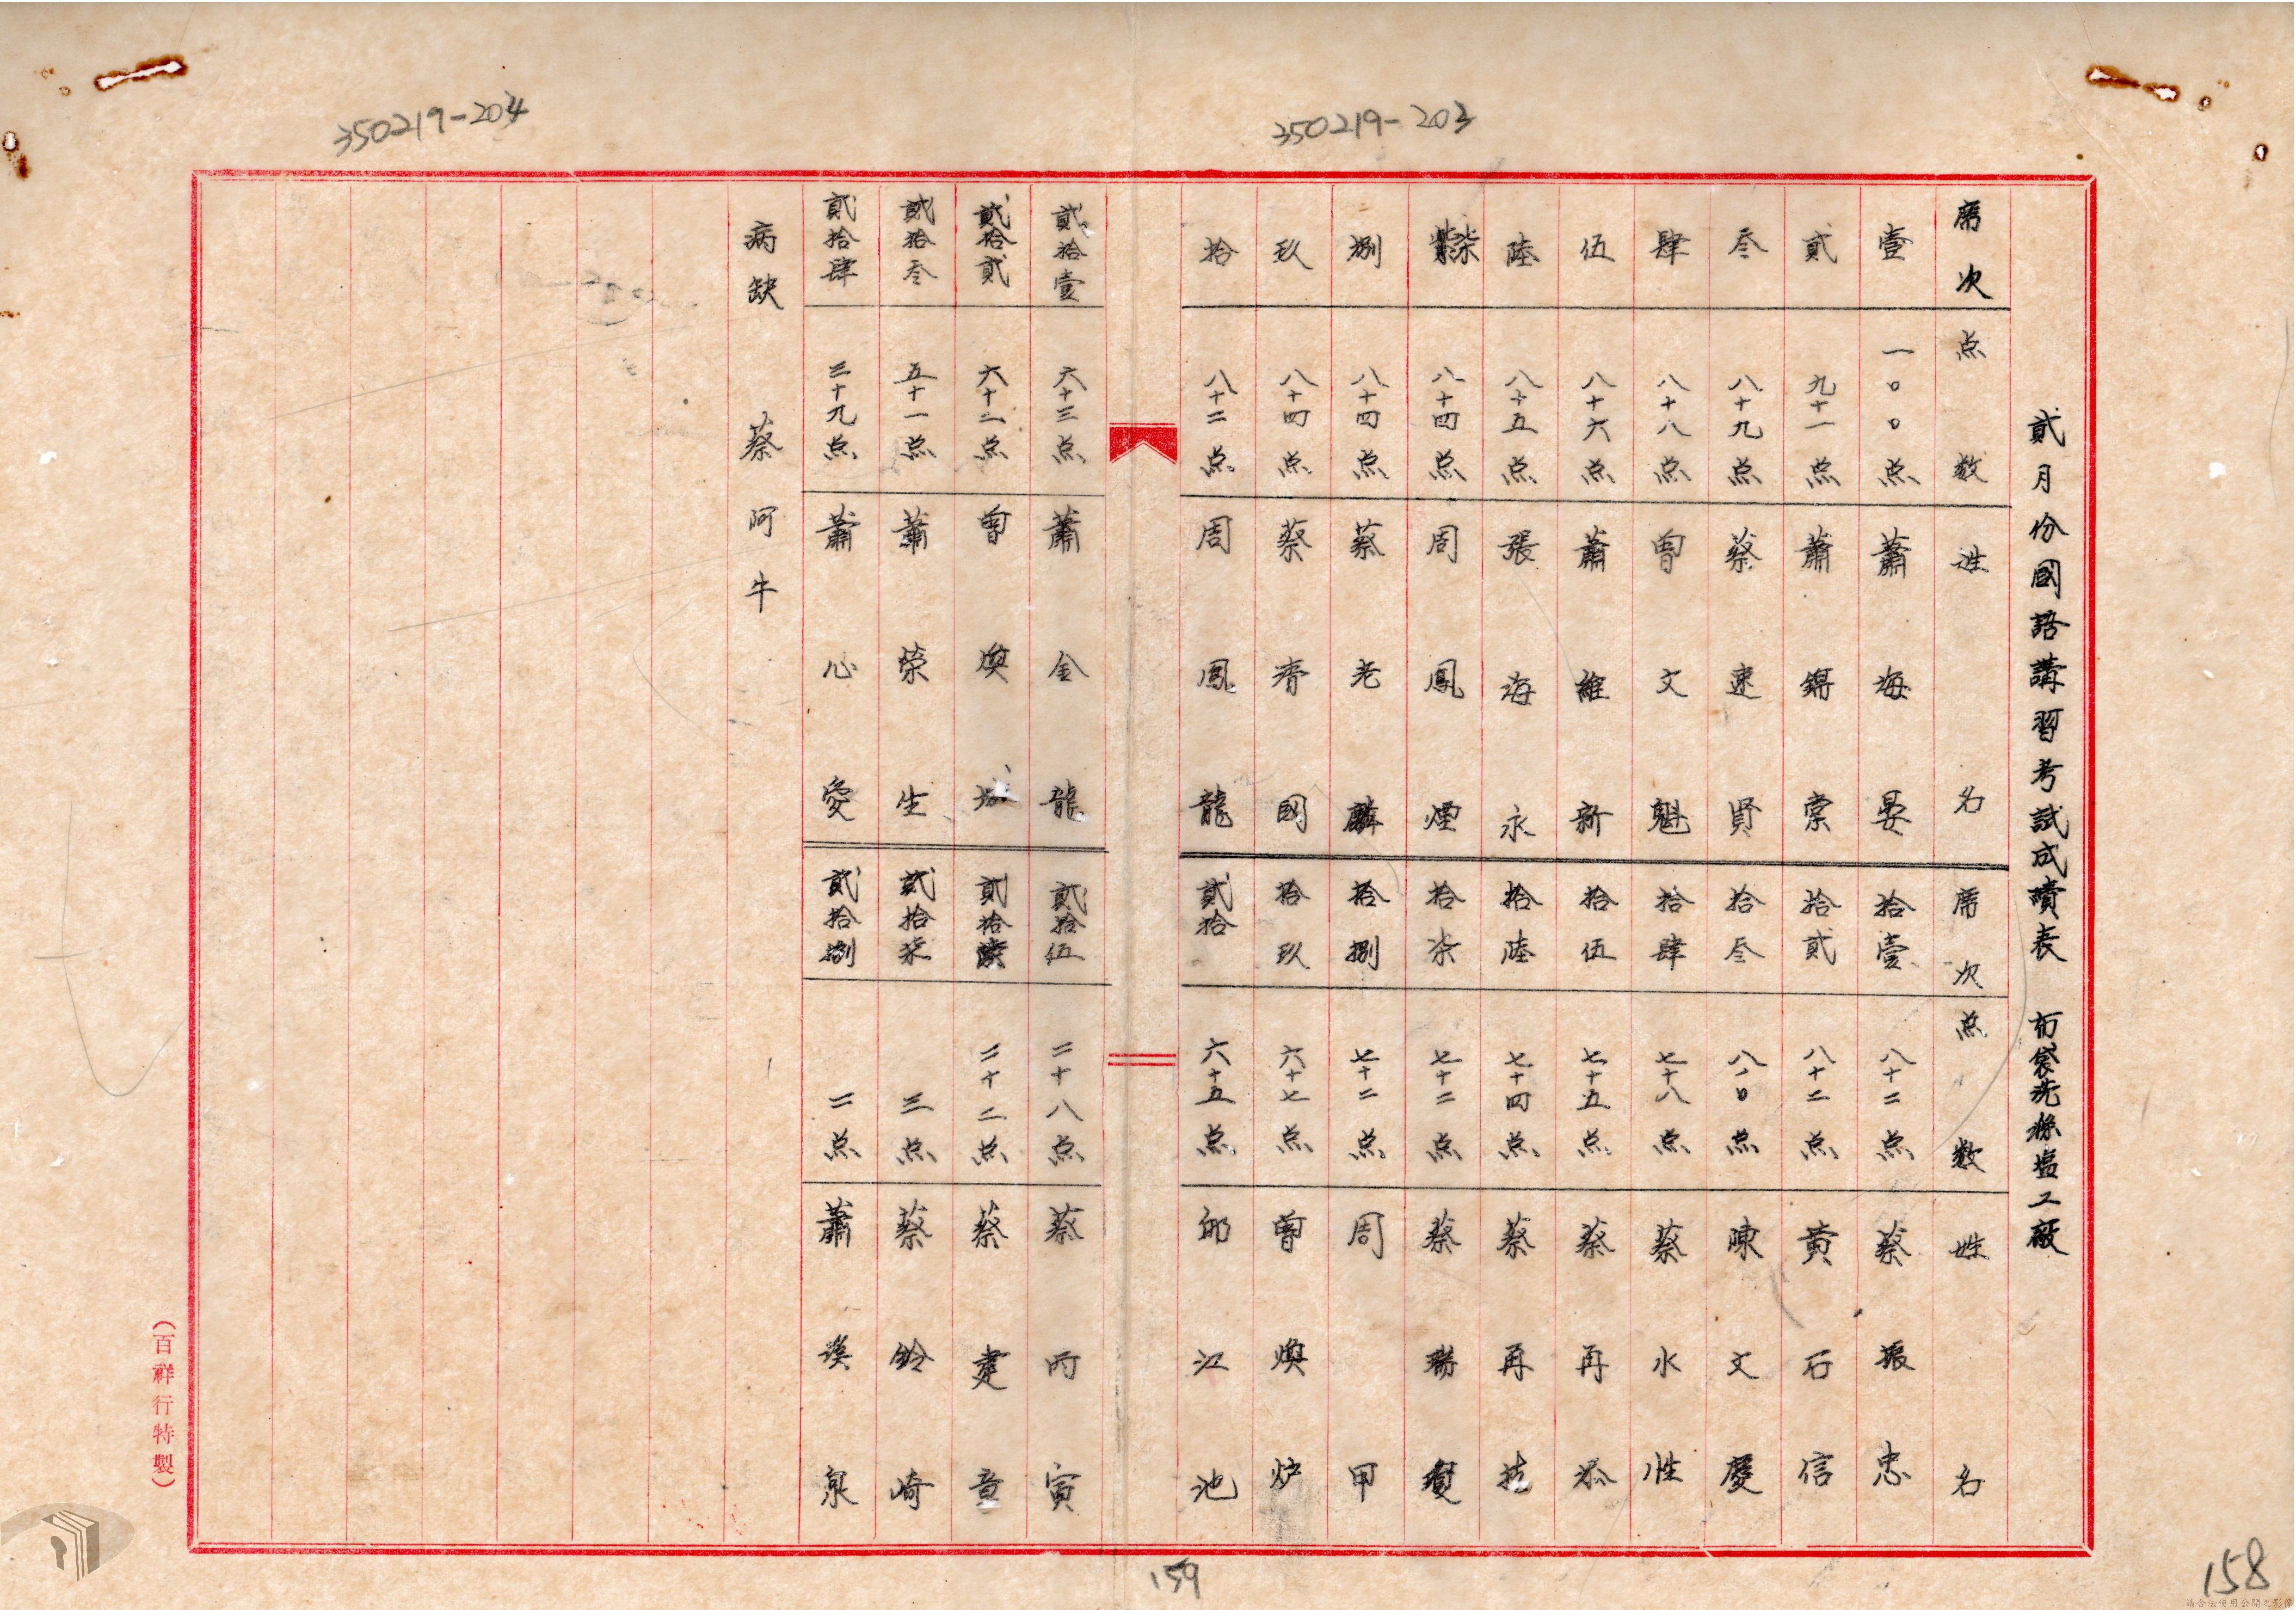 350219-203
350219-204
貳月份國語講習考試成績表 布袋洗滌塩工廠
席次 点数 姓名 席次 点数 姓名
壹 一〇〇点 蕭海晏 拾壹 八十二点 蔡振忠
貳 九十一点 蕭錦棠 拾貳 八十二点 黄石信
叁 八十九点 蔡速賢 拾叁 八〇点 陳文慶
肆 八十八点 曾文魁 拾肆 七十八点 蔡水性
伍 八十六点 蕭維新 拾伍 七十五点 蔡再添
陸 八十五点 張海永 拾陸 七十四点 蔡再技
柒 八十四点 周鳳煙 拾柒 七十二点 蔡瑞
捌 八十四点 蔡老麟 拾捌 七十二点 周甲
玖 八十四点 蔡齊國 拾玖 六十七点 曾煥炉
拾 八十二点 周鳳龍 貳拾 六十五点 邱江池
貳拾壹 六十三点 蕭金龍 貳拾伍 二十八点 蔡丙寅
貳拾貳 六十二点 曾煥 貳拾陸 二十二点 蔡建章
貳拾叁 五十一点 蕭榮生 貳拾柒 三点 蔡鈴崎
貳拾肆 三十九点 蕭心愛 貳拾捌 二点 蕭漢泉
病缺 蔡阿牛
(百祥行特製)
159
158
請合法使用公開之影像